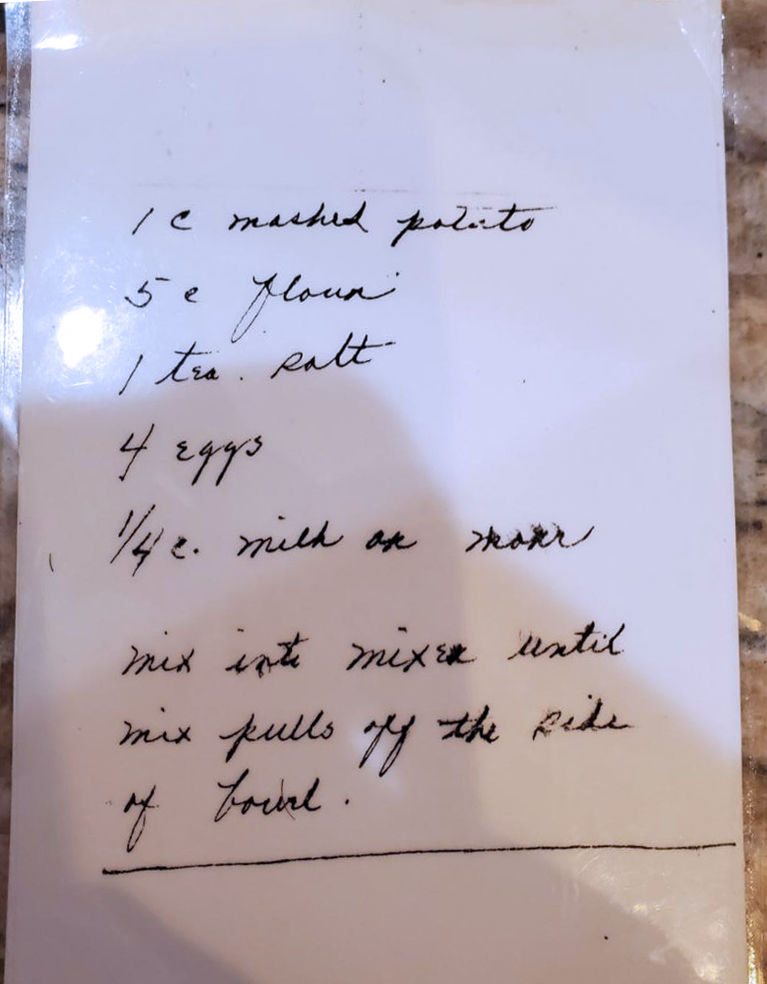 1 c mashed potato
5 c flour
1 tea. salt
4 eggs
1/4 c. milk or more
mix into mixer until
mix pulls off the side
of bowl.